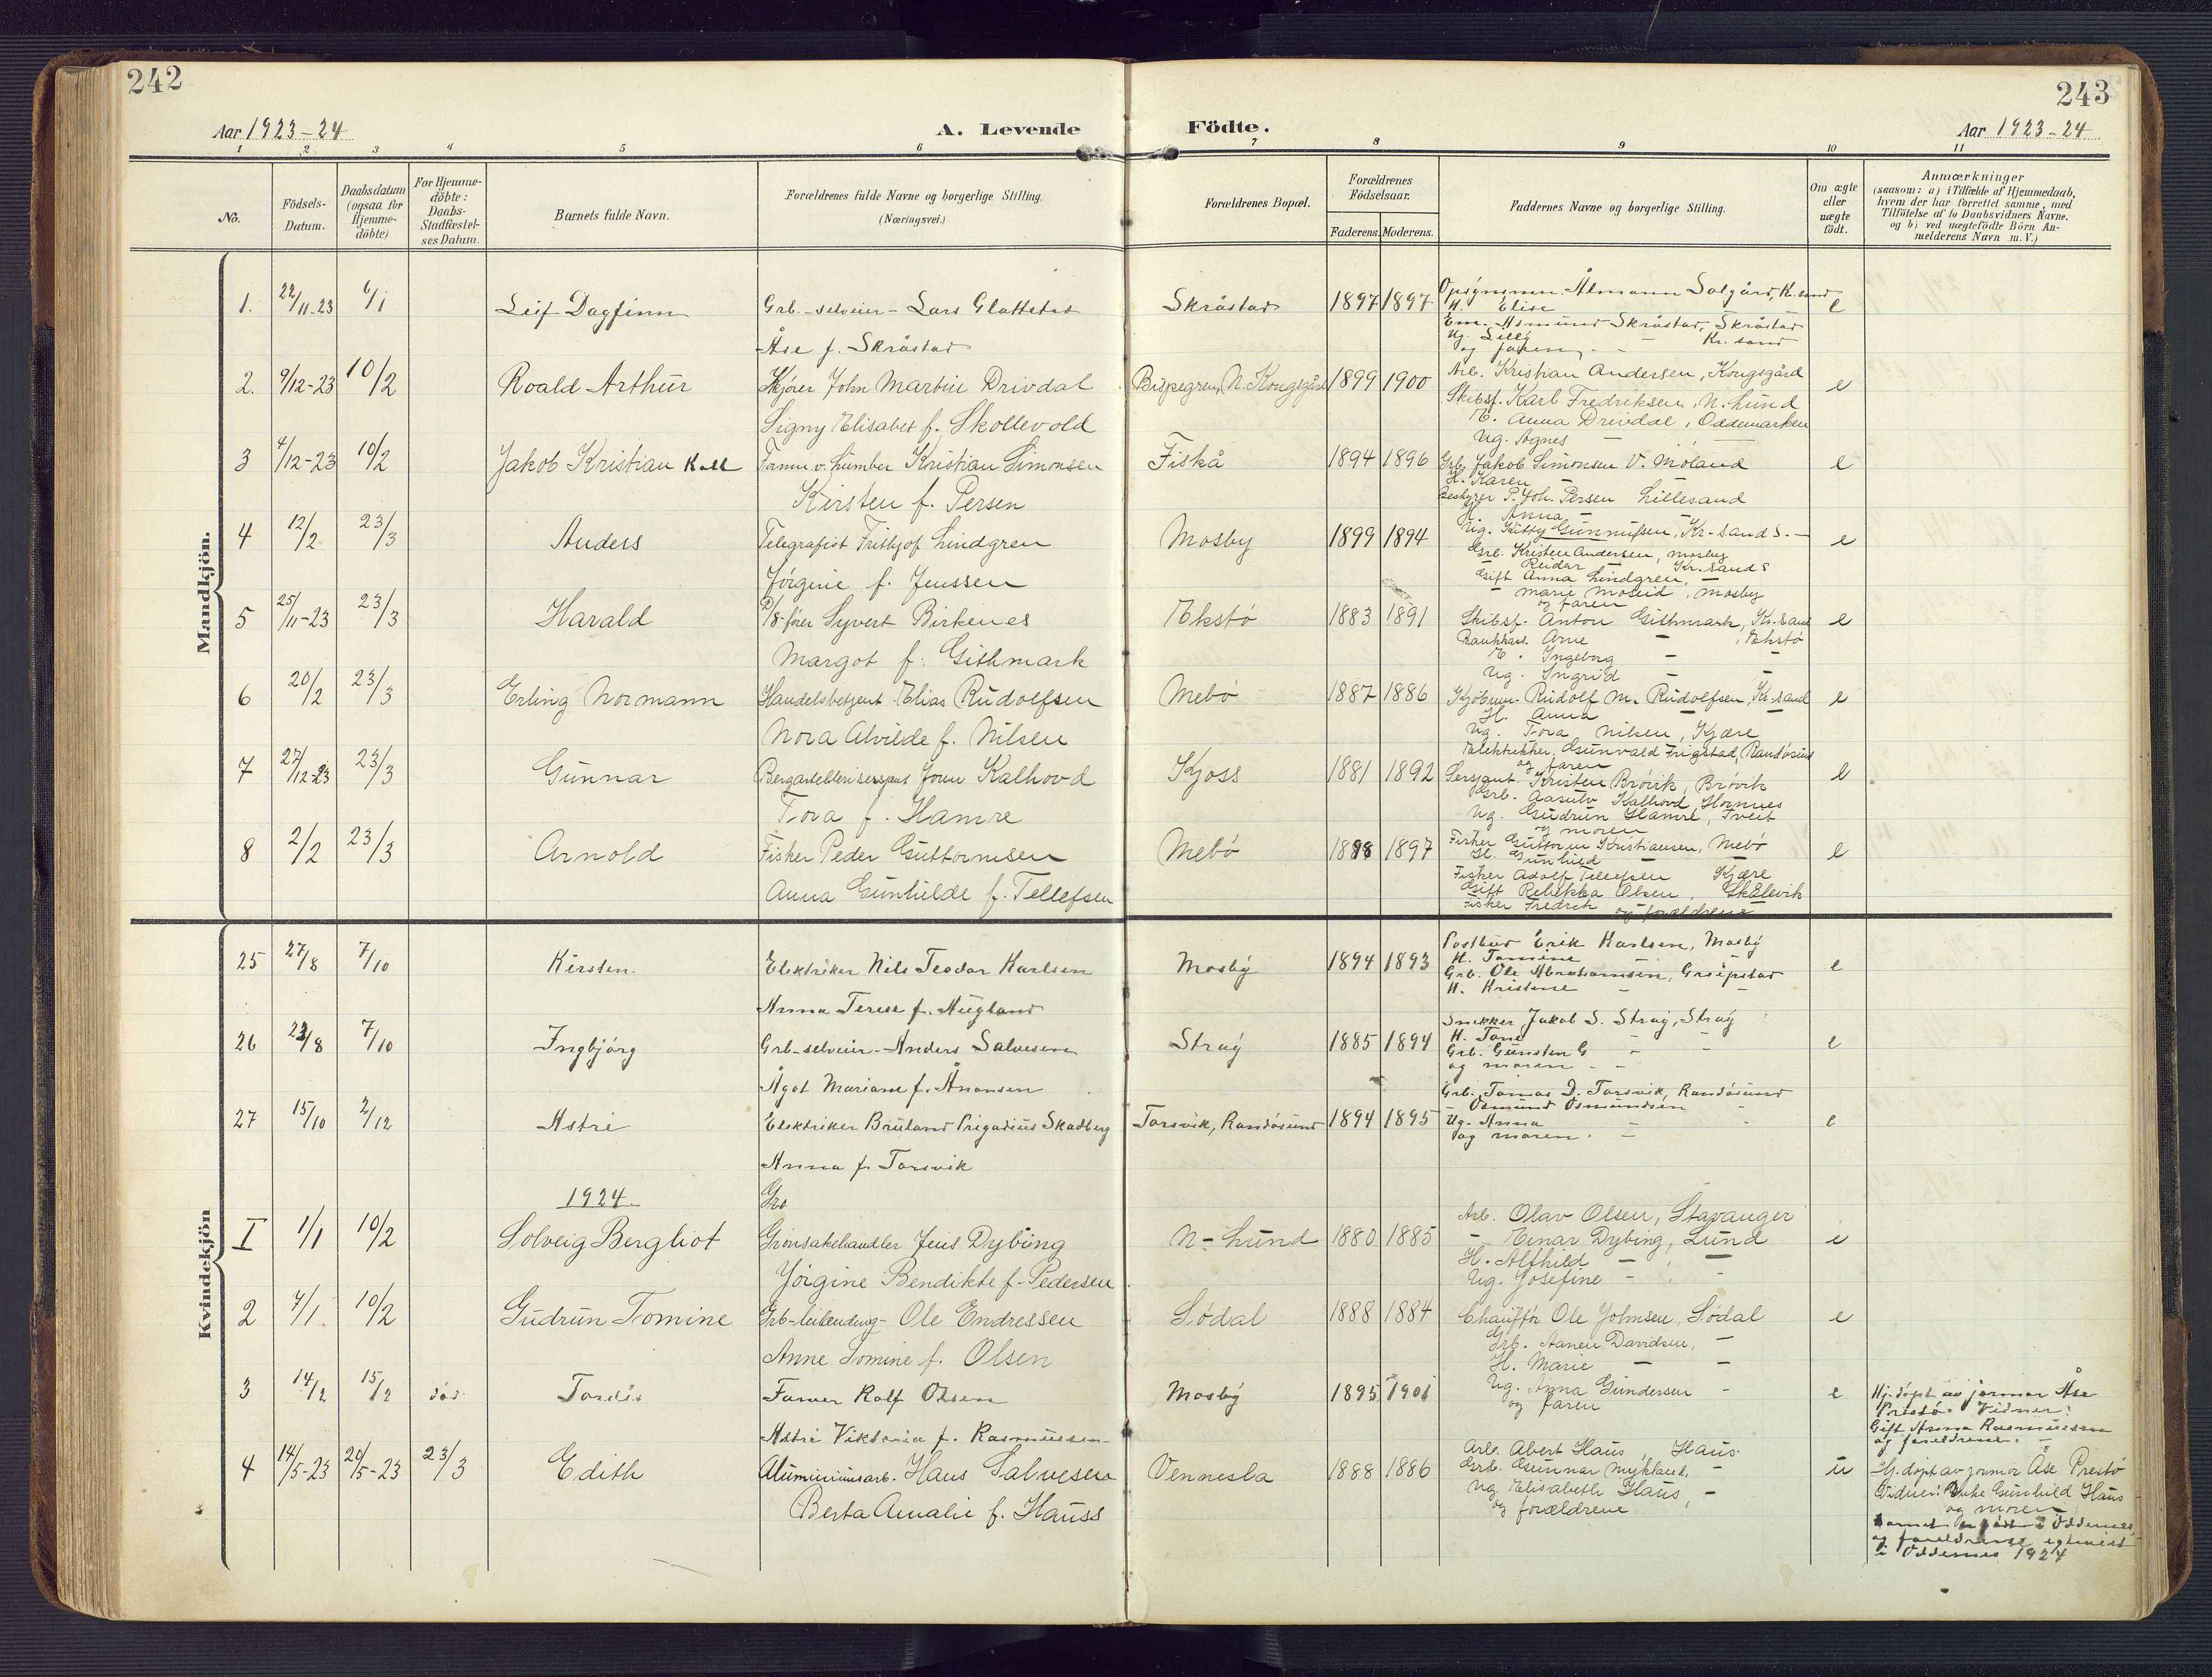 242
243
Aar 1923-24
A. Levende
Födte.
Aar 1923-24
1 2 3 4 5 6 7 8 9 10 11
No.
Födsels-Datum.
Daabsdatum (ogsaa for Hjemme-döbte)
For Hjemme-döbte: Daabs-Stadfæstel-ses Datum.
Barnets fulde Navn.
Forældrenes fulde Navne og borgerlige Stilling. (Næringsvei.)
Forældrenes Bopæl.
Forældrenes Födselsaar.
Faderens. Moderens.
Faddernes Navne og borgerlige Stilling.
Om ægte eller uægte födt.
Anmærkninger
(saasom: a) i Tilfælde af Hjemmedaab, hvem der har forrettet samme, med Tilföielse af to Daabsvidners Navne, og b) ved uegtefödte Börn An-melderens Navn m. V.)
Mandkjön.
1. 22/11-23 6/1 Leif Dagfinn Grb.-selveier- Lars Glattetre Skråstad 1897 1897 Almann Solgård, Kr.sand e
Åse f. Skråstad
H. Elise
Em. Asmund Skråstad, Skråstad
Ug. Lilly - Kr. sand
og faren
2. 9/12-23 10/2 Roald Arthur Kjörer John Martin Drivdal Bispegren, N. Kongsgård 1899 1900 Arb. Kristian Andersen, Kongsgård e
Signy Elisabet f. Skollevold
Skibsf. Karl Fredriksen, N. Lund
E. Anna Drivdal, Oddemarken
Ug. Agnes -
3 4/12-23 10/2 Jakob Kristian Kall Tömm. v. Lumber Kristian Simonsen Fiskå 1894 1896 Grb. Jakob Simonsen V. Möland e
Kirsten f. Persen
H. Karen -
Bestyrer P. Joh. Persen Lillesand
H. Anna -
4 12/2 23/3 Anders Telegrafist Fritjof Lindgren Mosby 1899 1894 Ug. Kitty Gunnufsen, Kr-sand S. e
Jörgine f. Jenssen
Grb. Kristen Andersen, Mosby
- Reidar - Kr. sand S
Gift Anna Lindgren, -
- Marie Moseid, Mosby
og faren
5 25/11-23 23/3 Harald D/S-förer Syvert Birkenes Ekstö 1883 1891 Skibsf. Anton Githmark, Kr-sand e
Margot f. Githmark
Bankkas. Arne - , Ekstö
E. Ingeborg - -
Ug. Ingrid - -
6 20/2 23/3 Erling Normann Handelsbetjent Elias Rudolfsen Mebö 1887 1886 Kjöbm. Rudolf M. Rudolfsen, Kr-sand e
Nora Alvilde f. Nilsen
H. Anna - -
Ug. Tora Nilsen, Kjære
Elektriker Gunvald Frigstad, Randösund
og faren
7 27/12-23 23/3 Gunnar Bergartillerisersjant Jonn Kalhovd Kjoss 1881 1892 Sersjant Kristen Brövik, Brövik e
Tora f. Hamre
Grb. Aasulv Kalhovd, Hornnes
Ug. Gudrun Hamre, Tveit
og moren
8 2/2 23/3 Arnold Fisker Peder Guttormsen Mebö 1898 1897 Fisker Guttorm Kristiansen, Mebö e
Anna Gunhilde f. Tellefsen
H. Gunhild - -
Fisker Adolf Tellefsen Kjære
Gift Rebekka Olsen, Skålevik
Fisker Fredrik og forældrene
Kvindekjön
25 27/8 7/10 Kirsten. Elektriker Nils Teodor Karlsen Mosby 1894 1893 Postbud Erik Karlsen, Mosby e
Anna Terese f. Augland
H. Tomine - -
Grb. Ole Abrahamsen, Greipstad
H. Kristine - -
26 23/8 7/10 Ingbjörg Grb-selveier-Anders Salvesen Stray 1885 1894 Snekker Jakob S. Stray, Stray e
Ågot Mariane f. Ånonsen
H. Tone - -
Grb. Gunsten G - -
og moren - -
27 15/10 2/12 Astri Elektriker Bruland Prigadius Skadberg Torsvik, Randösund 1894 1895 Grb. Tomas D. Torsvik, Randösund e
Anna f. Torsvik
- Osmund Osmundsen -
Ug. Anna - -
og moren. -
1924
Gro
I 1/1 10/2 Solveig Bergliot Grönsakehandler Jens Dybing N-Lund 1880 1885 Arb. Olav Olsen, Stavanger e
Jörgine Bendikte f. Pedersen
- Einar Dybing, Lund
H. Alfhild - -
Ug. Josefine - -
2 4/1 10/2 Gudrun Tomine Grb-leilending- Ole Endressen Södal 1888 1884 Chaufför Ole Johnsen, Södal e
Anne Tomine f. Olsen
Grb. Aanen Davidsen, -
H. Marie - -
Ug. Anna Gundersen -
og faren
3 14/2 15/2 död Tordis Farver Rolf Olsen Mosby 1895 1901 e Hj.döpt av jormor Åse
Astri Viktoria f. Rasmussen
Prestö. Vidner:
Gift Anna Rasmussen
og foreldrene. -
4 14/5-23 20/5-23 23/3 Edith Aluminiumsarb. Hans Salvesen Vennesla 1888 1886 Arb. Abert Haus, Haus. u Hj. döpt av jormor Åse Prestö
Berta Amalie f. Hauss
Grb. Gunnar Mykland, -
Ug. Elisabeth Haus, -
og forældrene
Vidner: Enke Gunhild Haus
og moren
Barnet er födt i Oddernes,
og foreldrene egteviet
i Oddernes 1924